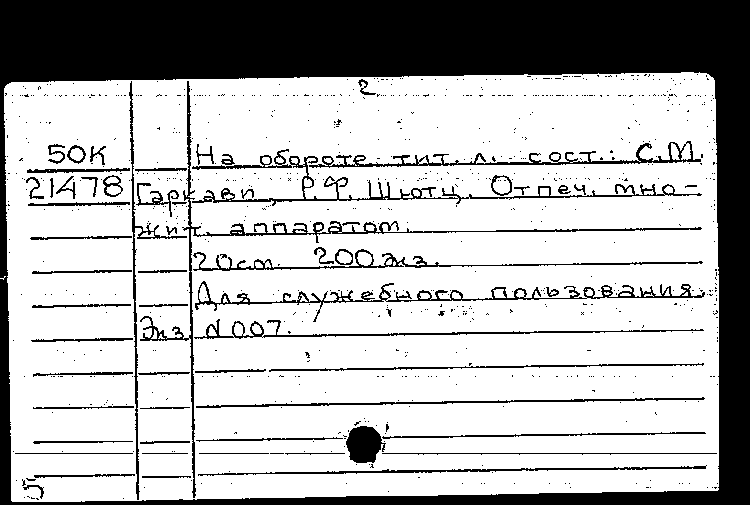 2
50К На обороте тит. л. сост.: С.М.
21478 Гаркави, Р.Ф. Шютц. Отпеч. мно-
жит. аппаратом.
20см. 200 экз.
Для служебного пользования.
Экз. N007.
5